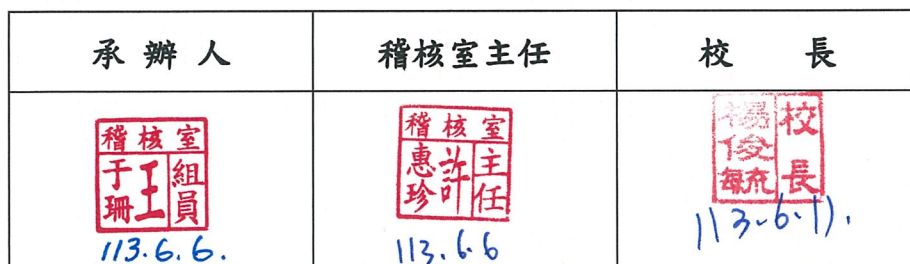 承辦人
稽核室主任
校長
稽核室
組員
王于珊
113.6.6.
稽核室
主任
許惠珍
113.6.6
校長
楊俊毓
113.6.11.